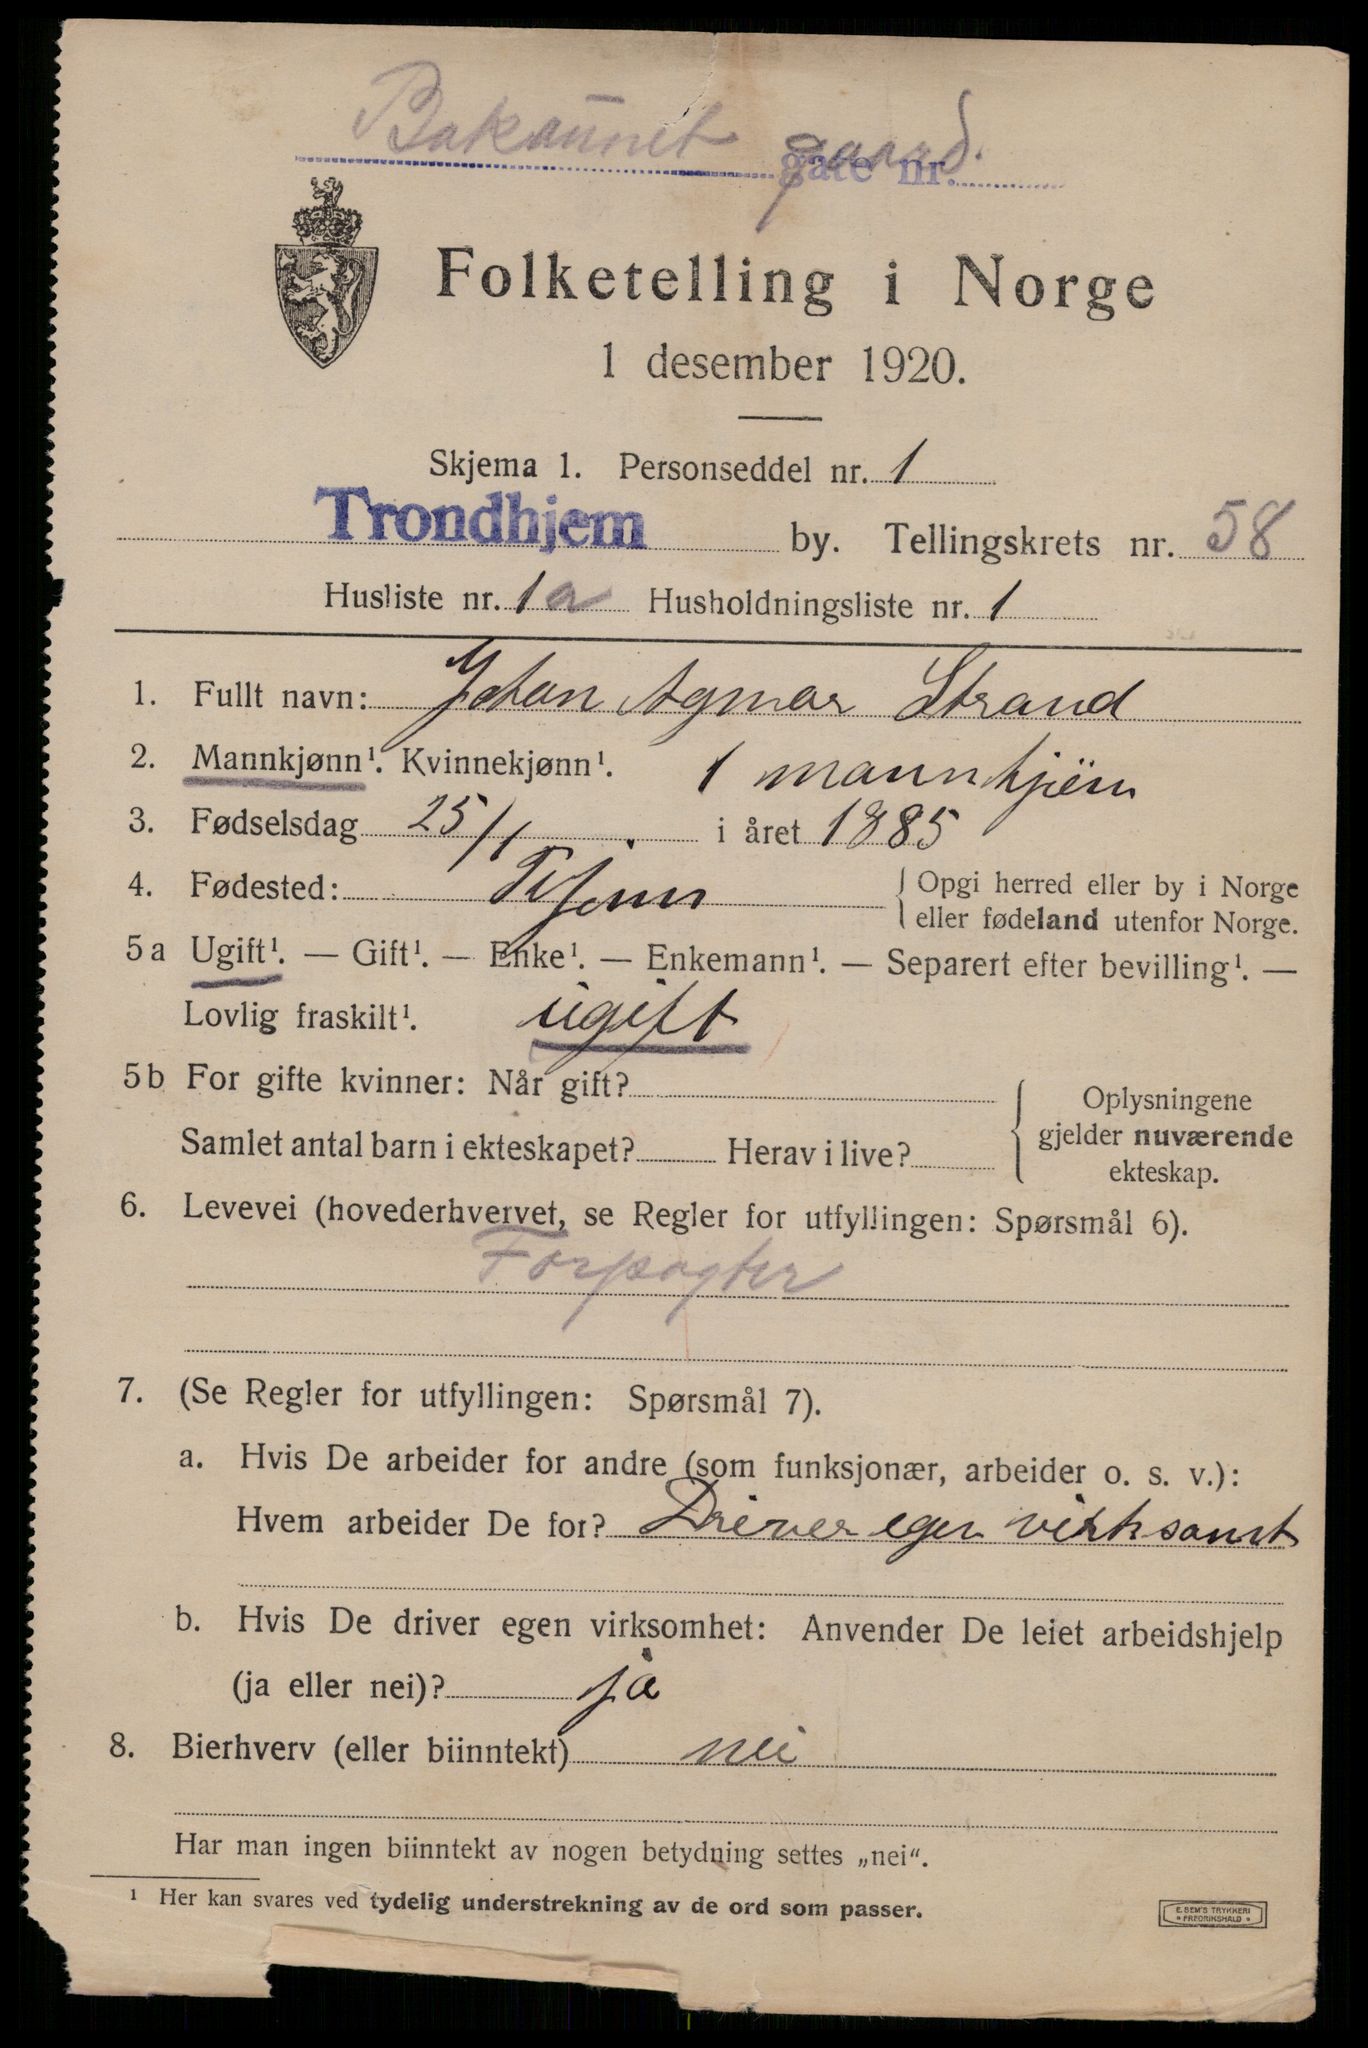 Bakaunet gaard.
gate nr.
Folketelling i Norge
1 desember 1920.
Skjema 1. Personseddel nr. 1
Trondhjem by. Tellingskrets nr. 58
Husliste nr. 1a Husholdningsliste nr. 1
1. Fullt navn: Johan Agmar Strand
2. Mannkjønn¹. Kvinnekjønn¹. 1 mannkjøn
3. Fødselsdag 25/1 i året 1885
4. Fødested: Tr.hjem { Opgi herred eller by i Norge
eller fødeland utenfor Norge.
5a Ugift¹. — Gift¹. — Enke¹. — Enkemann¹. — Separert efter bevilling¹. —
Lovlig fraskilt¹. ugift
5b For gifte kvinner: Når gift?
Samlet antal barn i ekteskapet? Herav i live?
{ Oplysningene
gjelder nuværende
ekteskap.
6. Levevei (hovederhvervet, se Regler for utfyllingen: Spørsmål 6).
Forpagter
7. (Se Regler for utfyllingen: Spørsmål 7).
a. Hvis De arbeider for andre (som funksjonær, arbeider o. s. v.):
Hvem arbeider De for? Driver egen virksomt
b. Hvis De driver egen virksomhet: Anvender De leiet arbeidshjelp
(ja eller nei)? ja
8. Bierhverv (eller biinntekt) nei
Har man ingen biinntekt av nogen betydning settes „nei“.
¹ Her kan svares ved tydelig understrekning av de ord som passer.
E. SEM'S TRYKKERI
* FREDRIKSHALD *